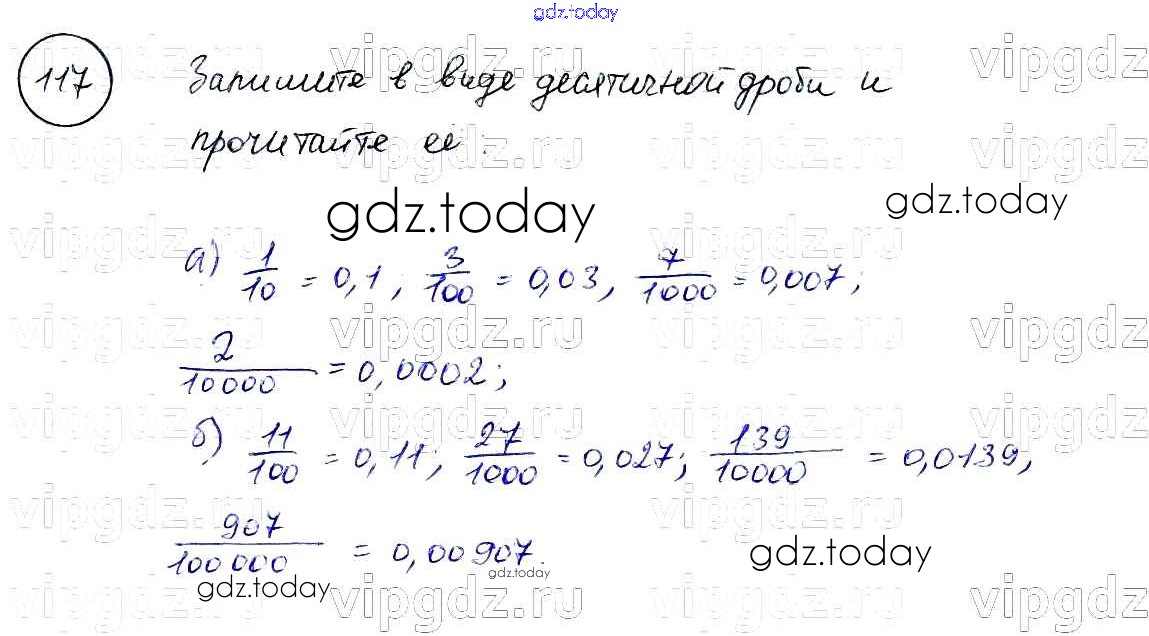 gdz.today
vipgdz.ru vipgdz.ru vipgdz.ru vipgdz
117 Запишите в виде десятичной дроби и
прочитайте ее:
vipgdz.ru vipgdz.ru vipgdz.ru vipgdz
gdz.today gdz.today
vipgdz.ru vipgdz.ru vipgdz.ru vipgdz
а) 1/10 = 0,1, 3/100 = 0,03, 7/1000 = 0,007;
vipgdz.ru vipgdz.ru vipgdz.ru vipgdz
2/10000 = 0,0002;
vipgdz.ru vipgdz.ru vipgdz.ru vipgdz
б) 11/100 = 0,11; 27/1000 = 0,027; 139/10000 = 0,0139,
vipgdz.ru vipgdz.ru vipgdz.ru vipgdz
907/100000 = 0,00907.
gdz.today gdz.today gdz.today
vipgdz.ru vipgdz.ru vipgdz.ru vipgdz